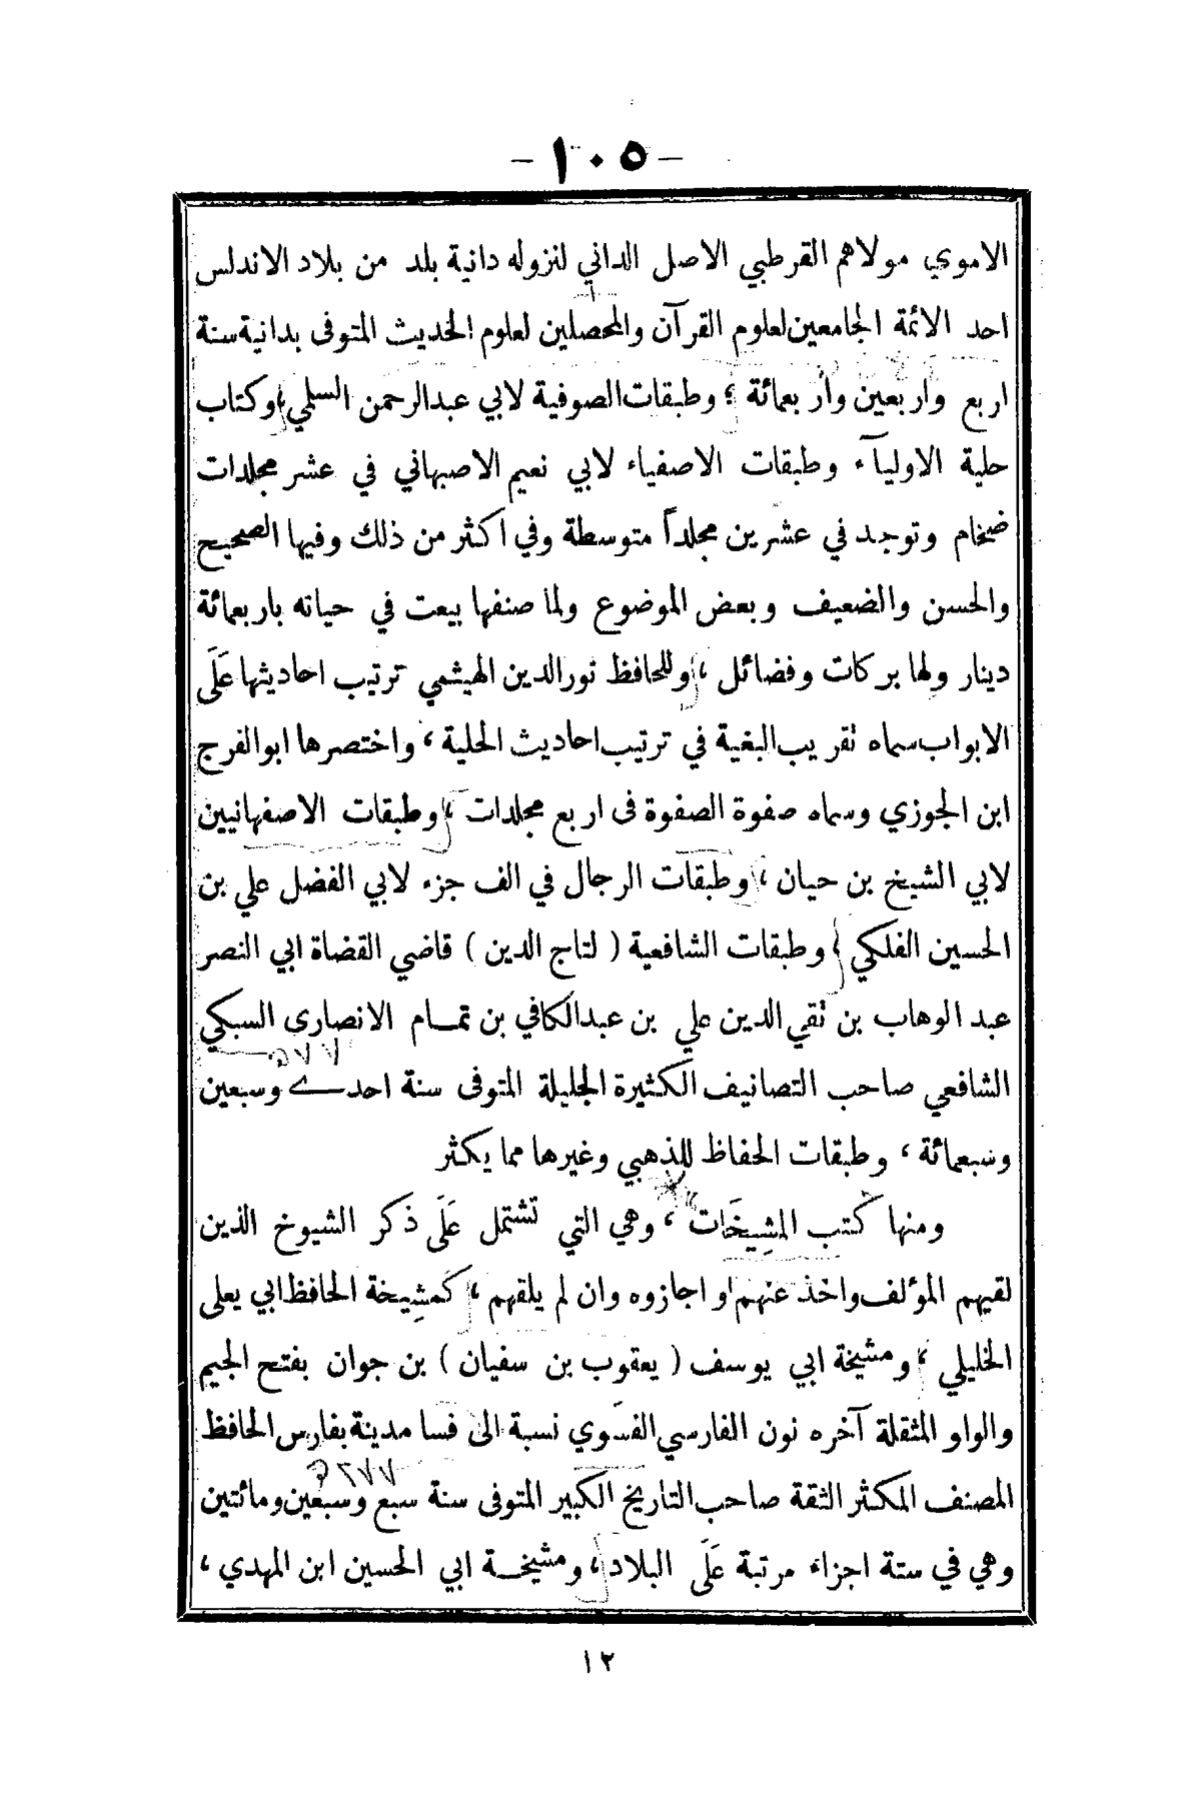 - ١٠٥ -
الاموي مولاهم القرطبي الاصل الداني لنزوله دانية بلد من بلاد الاندلس
احد الائمة الجامعين لعلوم القرآن والمحصلين لعلوم الحديث المتوفى بدانية سنة
اربع واربعين واربعمائة ، وطبقات الصوفية لابي عبدالرحمن السلمي ، وكتاب
حلية الاوليآء وطبقات الاصفياء لابي نعيم الاصبهاني في عشر مجلدات
ضخام وتوجد في عشرين مجلداً متوسطة وفي اكثر من ذلك وفيها الصحيح
والحسن والضعيف وبعض الموضوع ولما صنفها بيعت في حياته باربعمائة
دينار ولها بركات وفضائل ، وللحافظ نورالدين الهيثمي ترتيب احاديثها عَلَى
الابواب سماه تقريب البغية في ترتيب احاديث الحلية ، واختصرها ابوالفرج
ابن الجوزي وسماه صفوة الصفوة فى اربع مجلدات ، وطبقات الاصفهانيين
لابي الشيخ بن حيان ، وطبقات الرجال في الف جزء لابي الفضل علي بن
الحسين الفلكي ، وطبقات الشافعية ( لتاج الدين ) قاضي القضاة ابي النصر
عبد الوهاب بن تقي الدين علي بن عبدالكافي بن تمـام الانصارى السبكي
٧٧١ه
الشافعي صاحب التصانيف الكثيرة الجليلة المتوفى سنة احدى وسبعين
وسبعمائة ، وطبقات الحفاظ للذهبي وغيرها مما يكثر
ومنها كتب المشِيخَات ، وهي التي تشتمل عَلَى ذكر الشيوخ الذين
لقيهم المؤلف واخذ عنهم او اجازوه وان لم يلقهم ، كمشِيخة الحافظ ابي يعلى
الخليلي ، ومشيخة ابي يوسف ( يعقوب بن سفيان ) بن جوان بفتح الجيم
والواو المثقلة آخره نون الفارسي الفسَوي نسبة الى فسا مدينة بفارس الحافظ
٢٧٧ه
المصنف المكثر الثقة صاحب التاريخ الكبير المتوفى سنة سبع وسبعين ومائتين
وهي في ستة اجزاء مرتبة عَلَى البلاد ، ومشيخـة ابي الحسين ابن المهدي ،
١٢